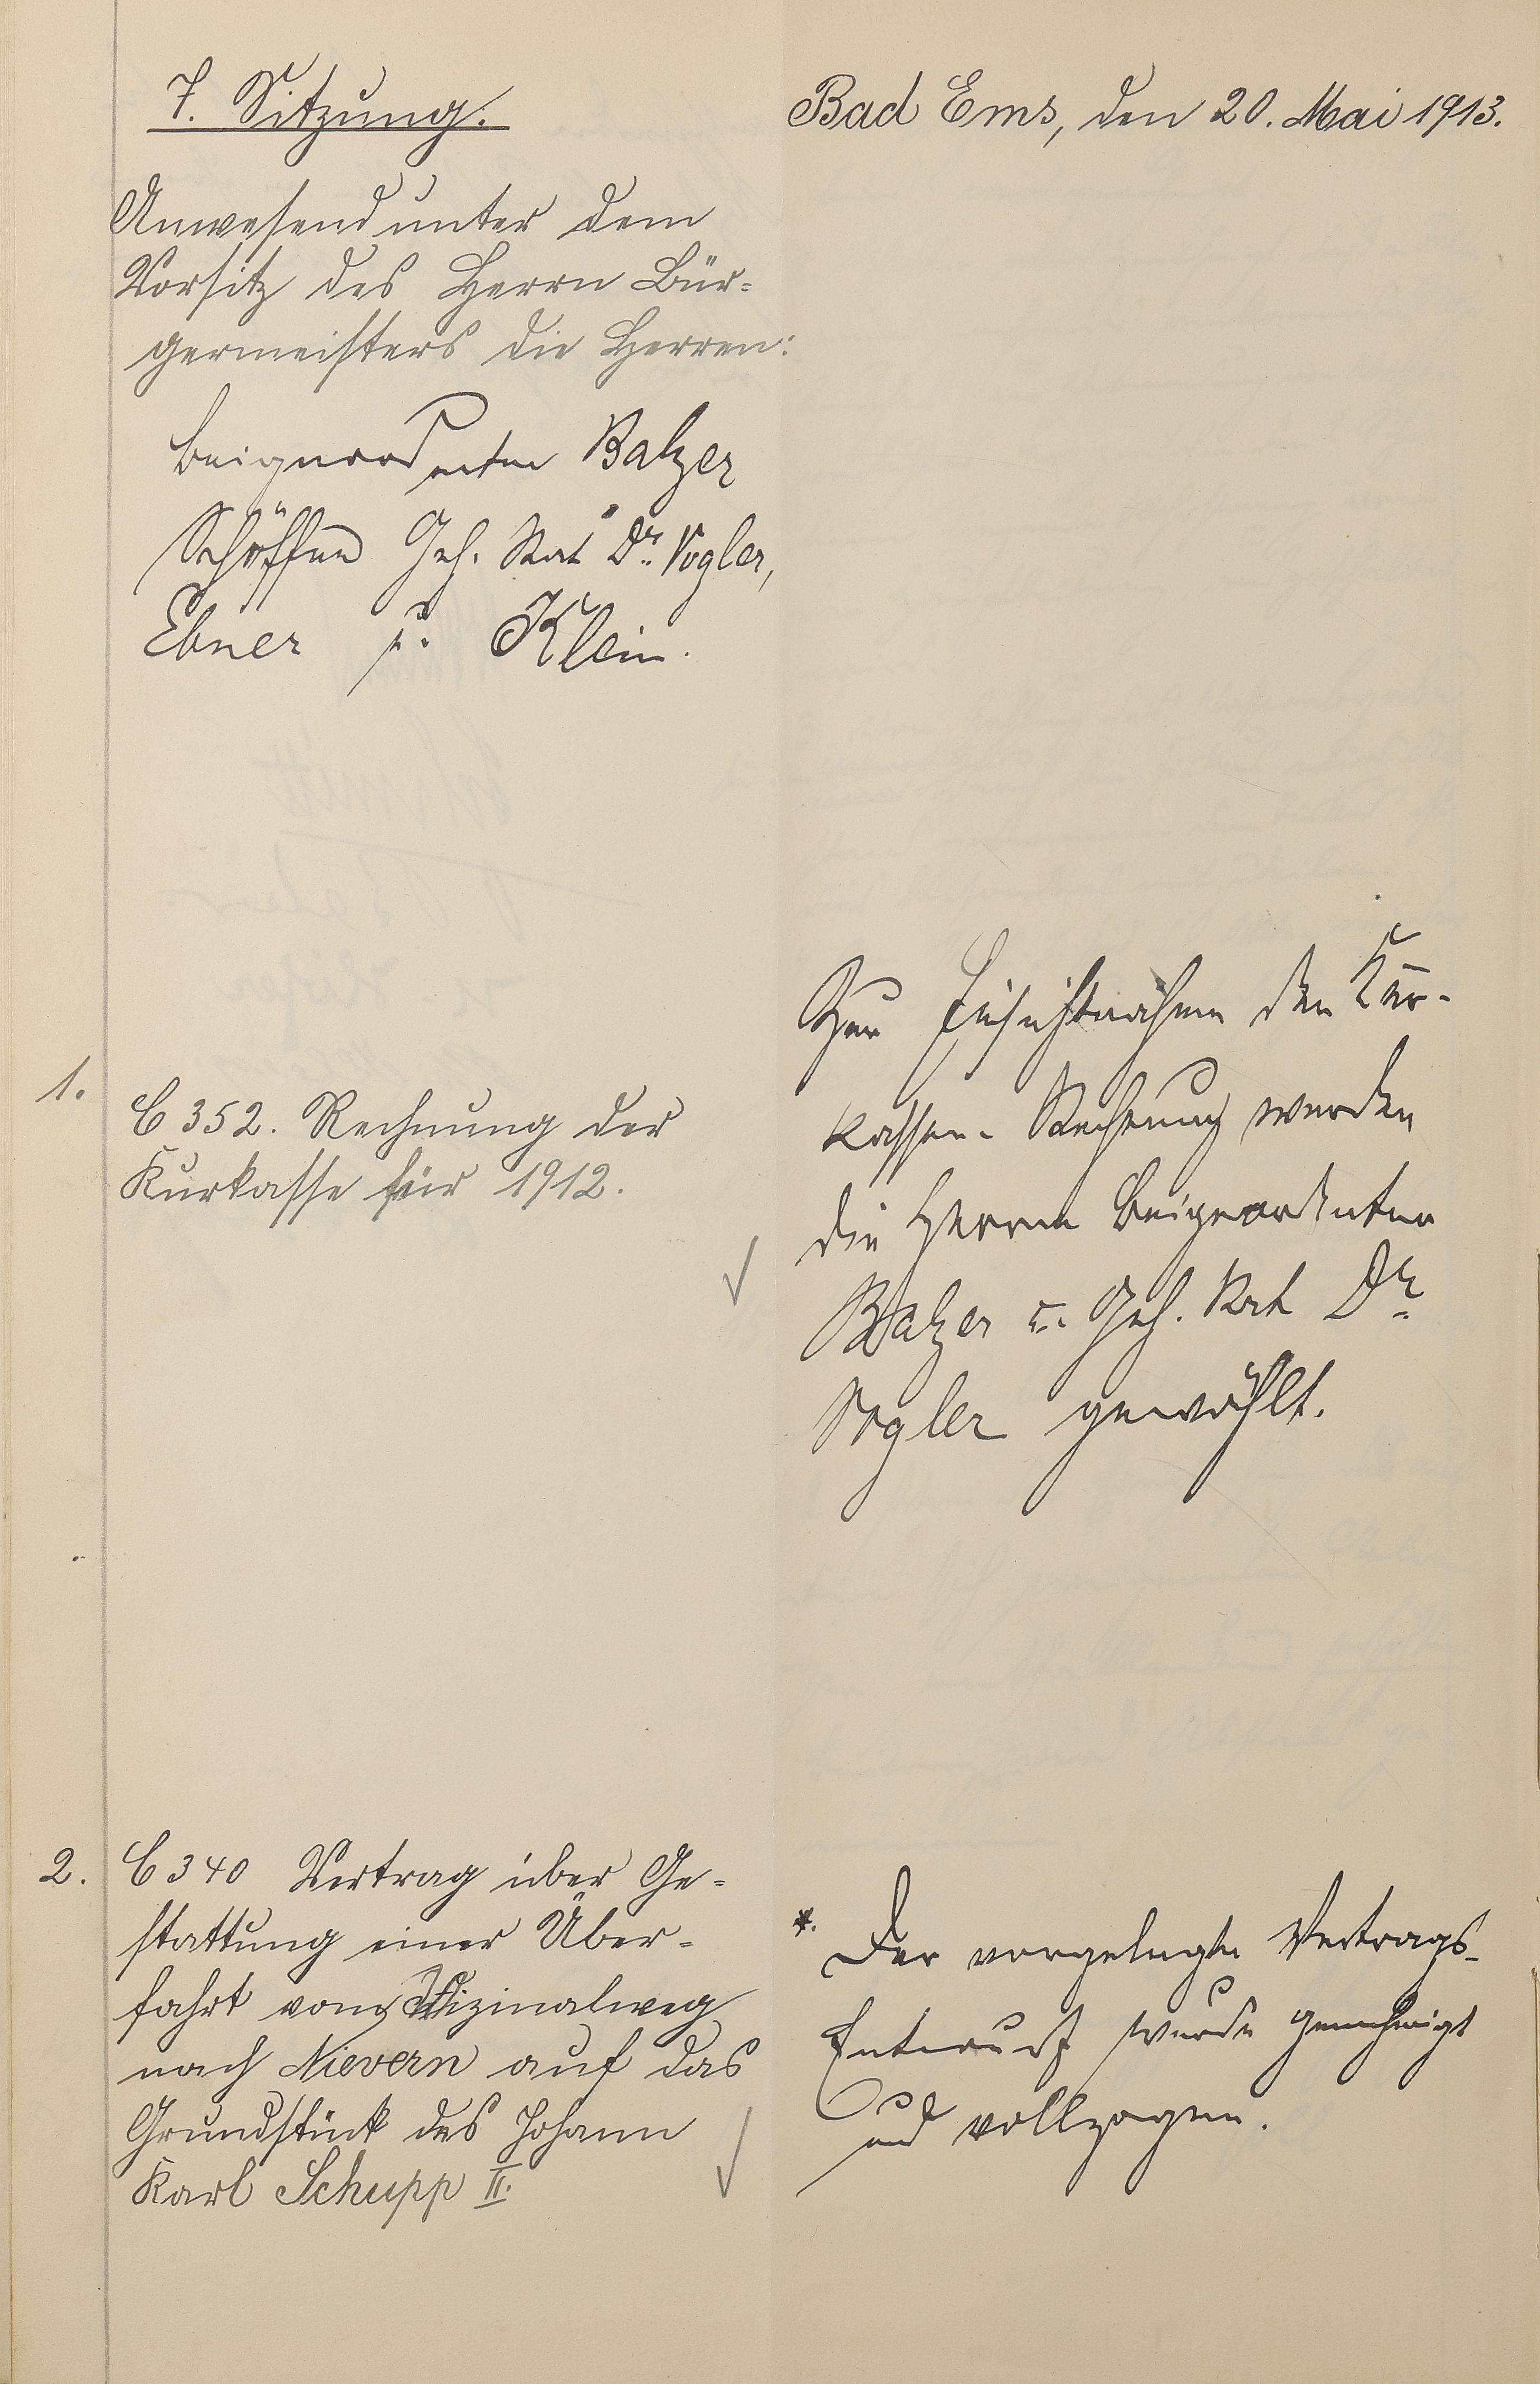 7. Sitzung.
Bad Ems, den 20. Mai 1913.
Anwesend unter dem
Vorsitz des Herrn Bür-
germeisters die Herren:
Beigeordneter Balzer
Schöffen Geh. Rat Dr. Vogler,
Ebner u. Klein.
1.
C 352. Rechnung der
Kurkasse für 1912.
Zur Einsichtnahme der Kur-
kassen-Rechnung werden
die Herren Beigeordneter
Balzer u. Geh. Rat Dr.
Vogler gewählt.
2.
C 340 Vertrag über Ge-
stattung einer Über-
fahrt vom Vizinalweg
nach Nievern auf das
Grundstück des Johann
Karl Schupp II.
*. Der vorgelegte Vertrags-
Entwurf wurde genehmigt
und vollzogen.